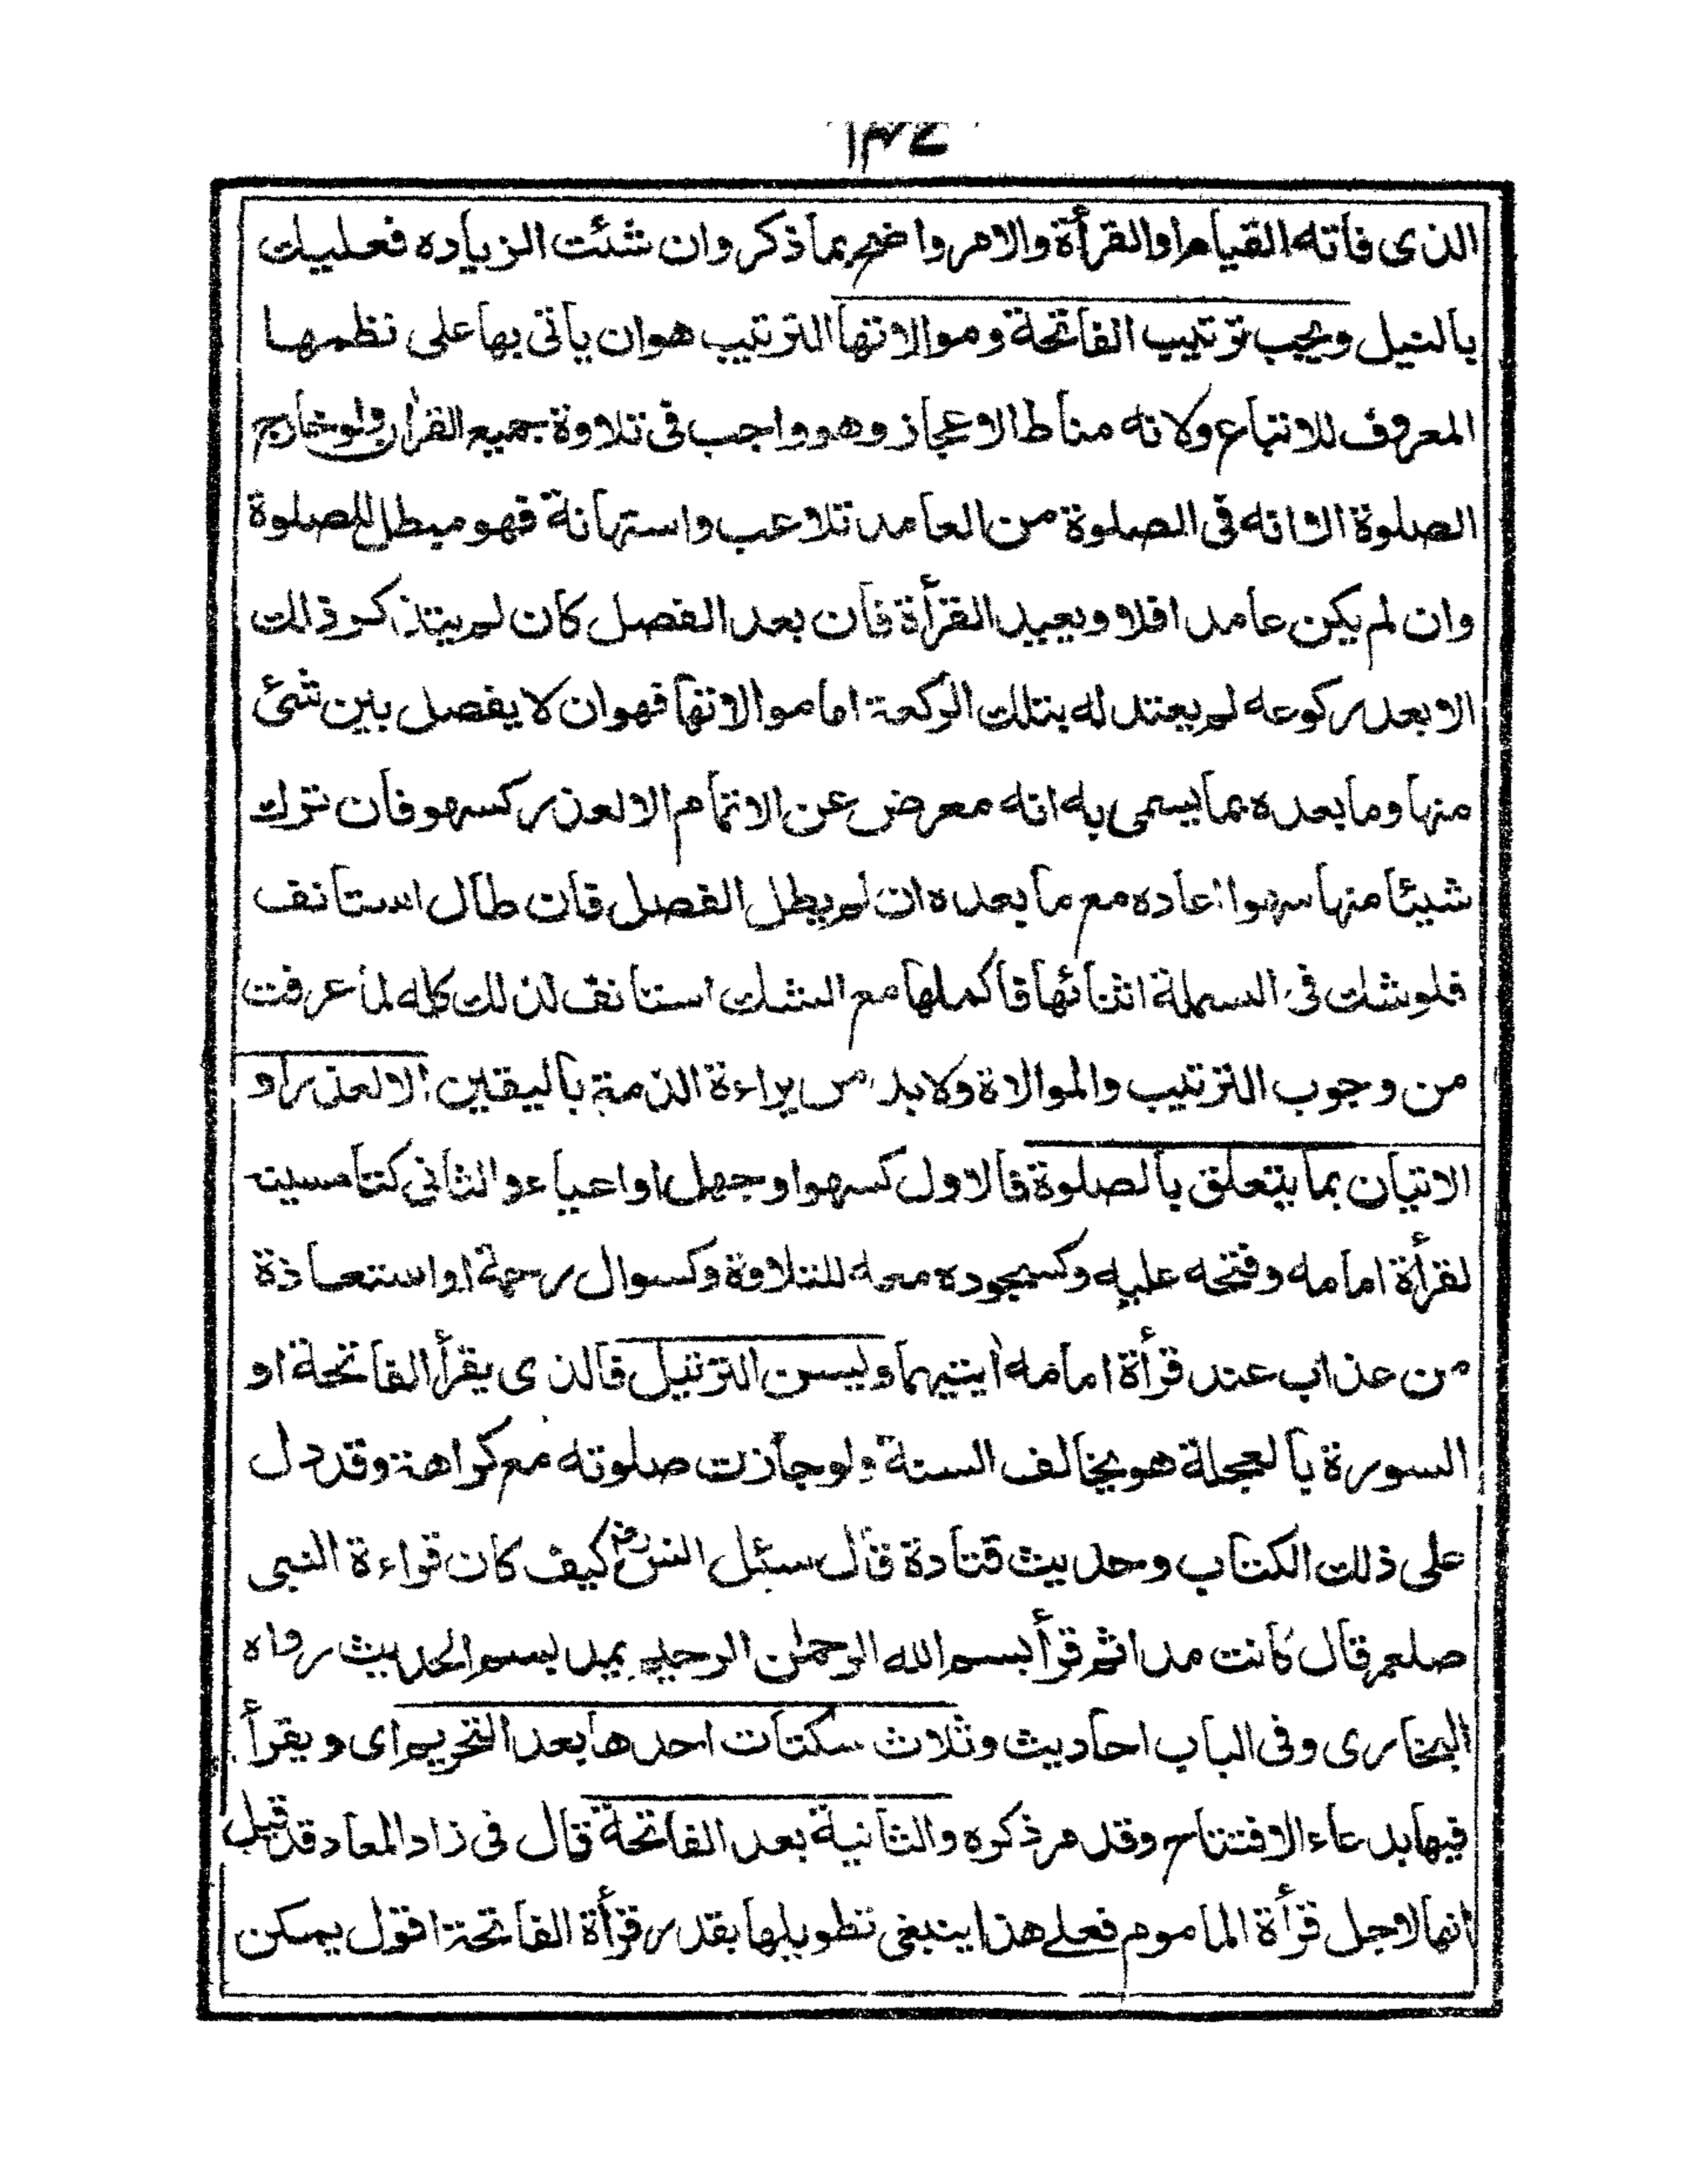 الذى فاته القيام او القرأة والامر واضح بما ذكر وان شئت الزياده فعليك
بالنيل ويجب ترتيب الفاتحة وموالاتها الترتيب هو ان ياتى بها على نظمها
المعروف للاتباع ولانه مناط الاعجاز وهو واجب فى تلاوة جميع القرأن ولو خارج
الصلوة الا انه فى الصلوة من العامد تلاعب واستهانة فهو مبطل للصلوة
وان لم يكن عامدا فلا ويعيد القرأة فان بعد الفصل كان لم يتذكر ذلك
الا بعد ركوعه لم يعتد له بتلك الركعة اما موالاتها فهو ان لا يفصل بين شئ
منها وما بعده بما يسمى به انه معرض عن الاتمام الا لعذر كسهو فان ترك
شيئا منها سهوا اعاده مع ما بعده ان لم يطل الفصل فان طال استانف
فلو شك فى البسملة اثنائها فاكملها مع الشك استانف لذلك كله لما عرفت
من وجوب الترتيب والموالاة ولا بد من براءة الذمة باليقين الا لعذر او
الاتيان بما يتعلق بالصلوة فالاول كسهو او جهل او اعياء والثانى كتامينه
لقرأة امامه وفتحه عليه وكسجوده معه للتلاوة وكسوال رحمة او استعاذة
من عذاب عند قرأة امامه أيتيهما ويسن الترتيل فالذى يقرأ الفاتحة او
السورة بالعجلة هو يخالف السنة ولو جازت صلوته مع كراهة وقد دل
على ذلك الكتاب وحديث قتادة قال سئل انس رض كيف كان قراءة النبى
صلعم قال كانت مدا ثم قرأ بسم الله الرحمن الرحيم يمد ببسم الحديث رواه
البخارى وفى الباب احاديث وثلاث سكتات احدها بعد التحريم اى ويقرأ
فيها بدعاء الافتتاح وقد مر ذكره والثانية بعد الفاتحة قال فى زاد المعاد قد قيل
انها لاجل قرأة الماموم فعلى هذا ينبغى تطويلها بقدر قرأة الفاتحة اقول يمكن